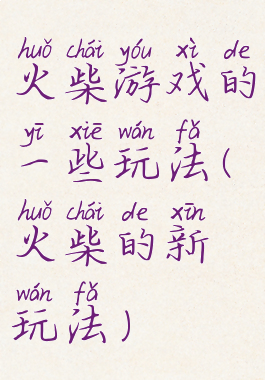 huǒ chái yóu xì de
火柴游戏的
yī xiē wán fǎ
一些玩法(
huǒ chái de xīn
火柴的新
wán fǎ
玩法)